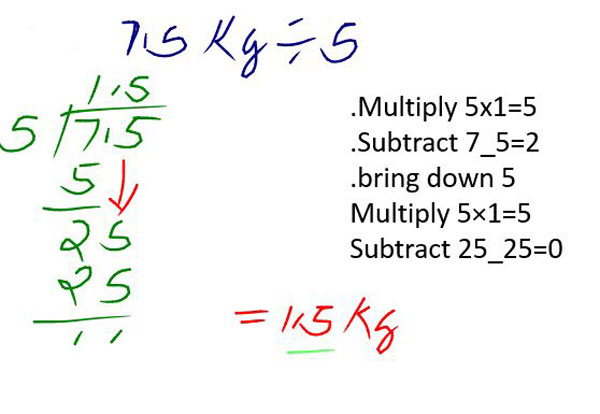 7.5 Kg ÷ 5
1.5
5 7.5
5
25
25
.Multiply 5x1=5
.Subtract 7_5=2
.bring down 5
Multiply 5×1=5
Subtract 25_25=0
= 1.5 Kg